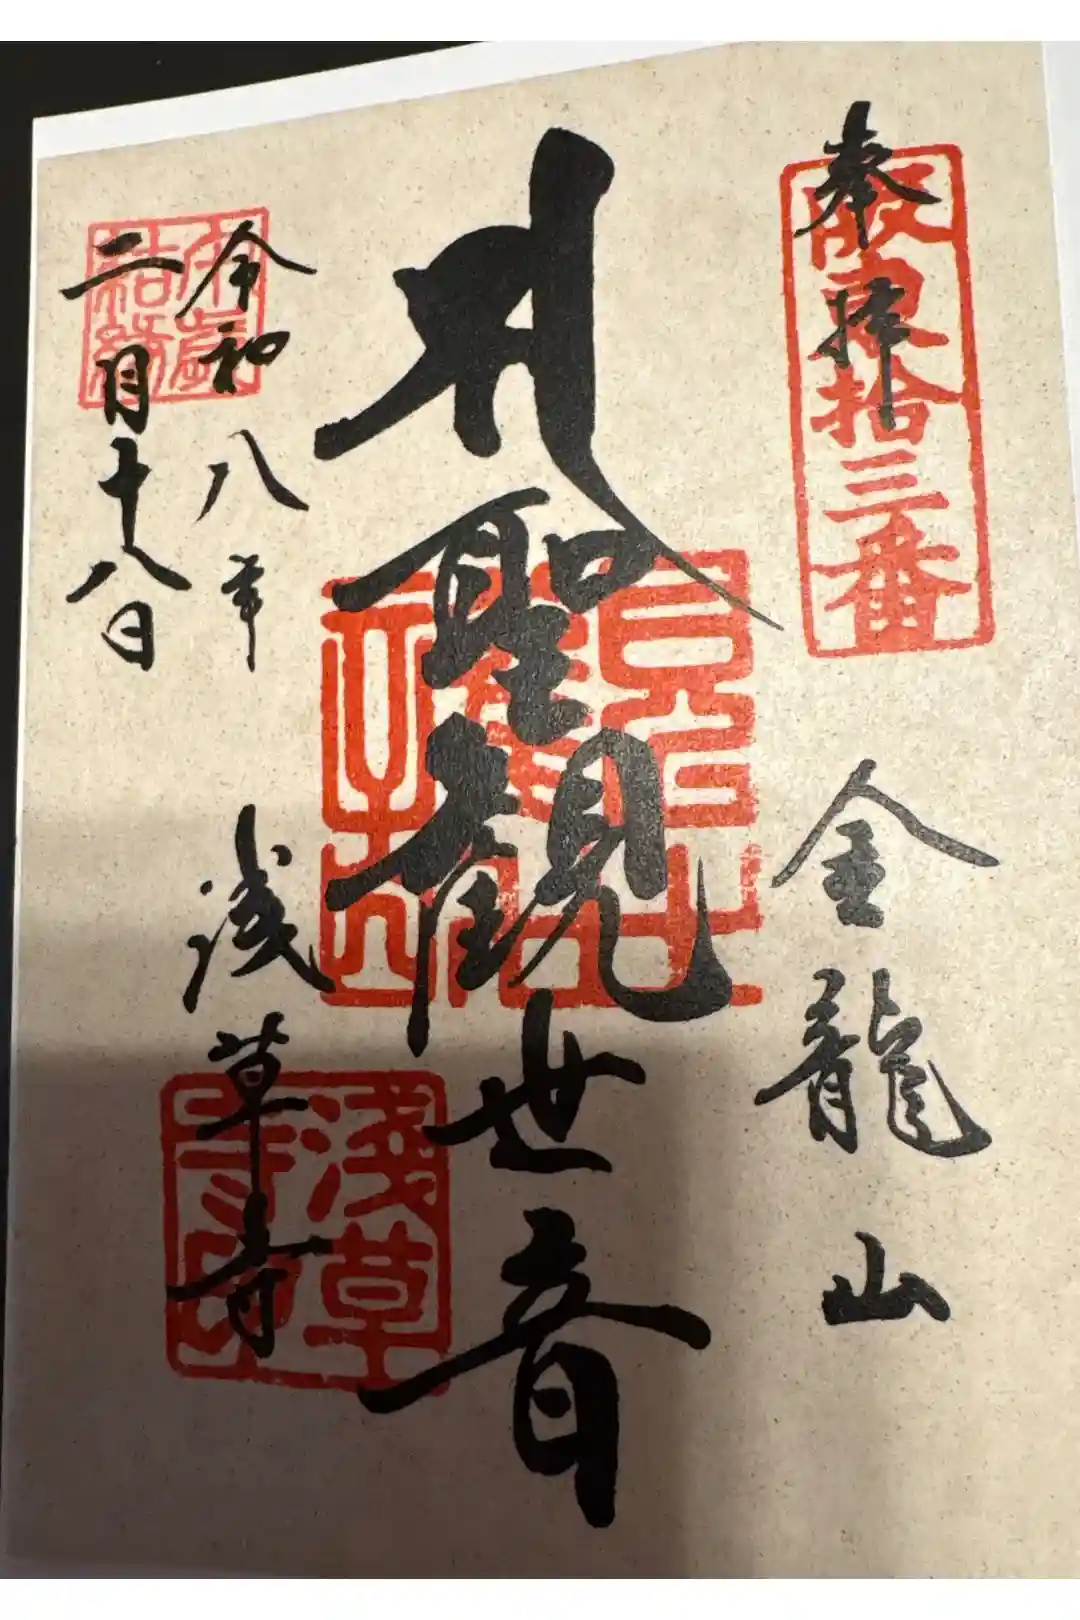 奉拝
坂東拾三番
金龍山
聖観世音
令和八年
二月十八日
浅草寺
淺草
寺印